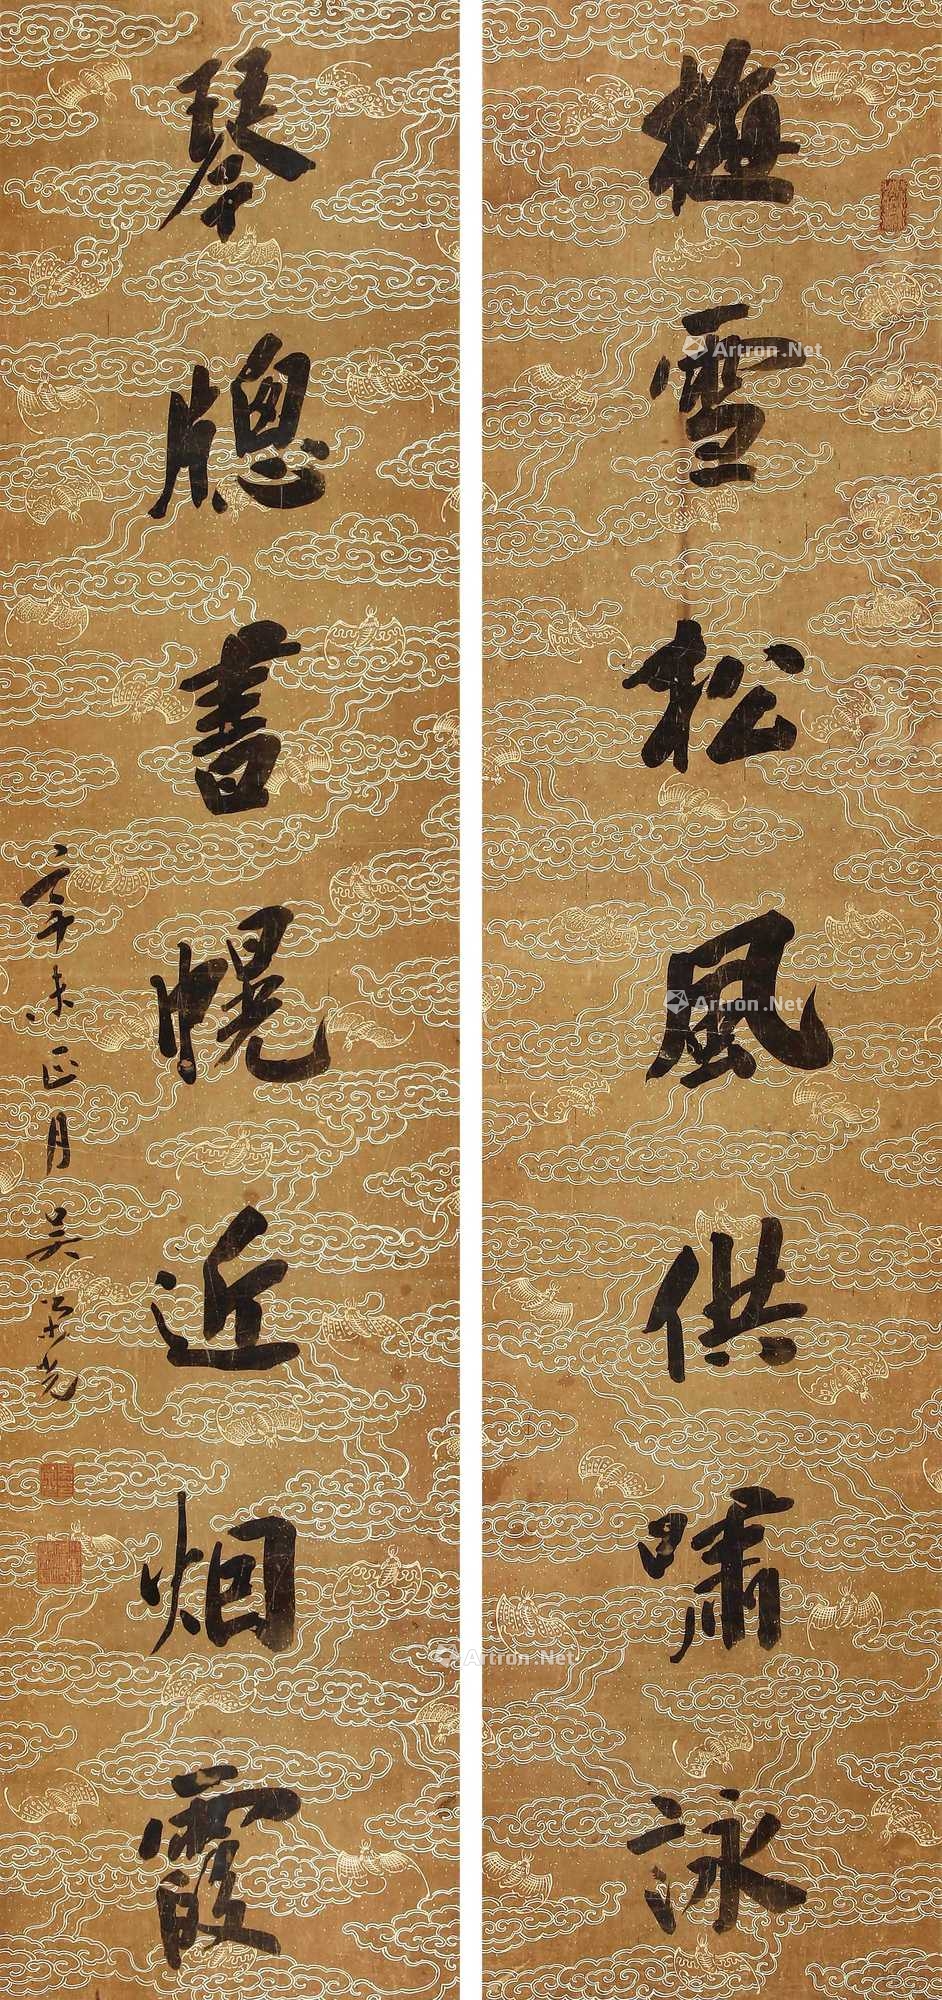 梅雪松風供嘯詠
琴牕書幌近烟霞
辛未正月吳榮光
Artron.Net
Artron.Net
Artron.Net